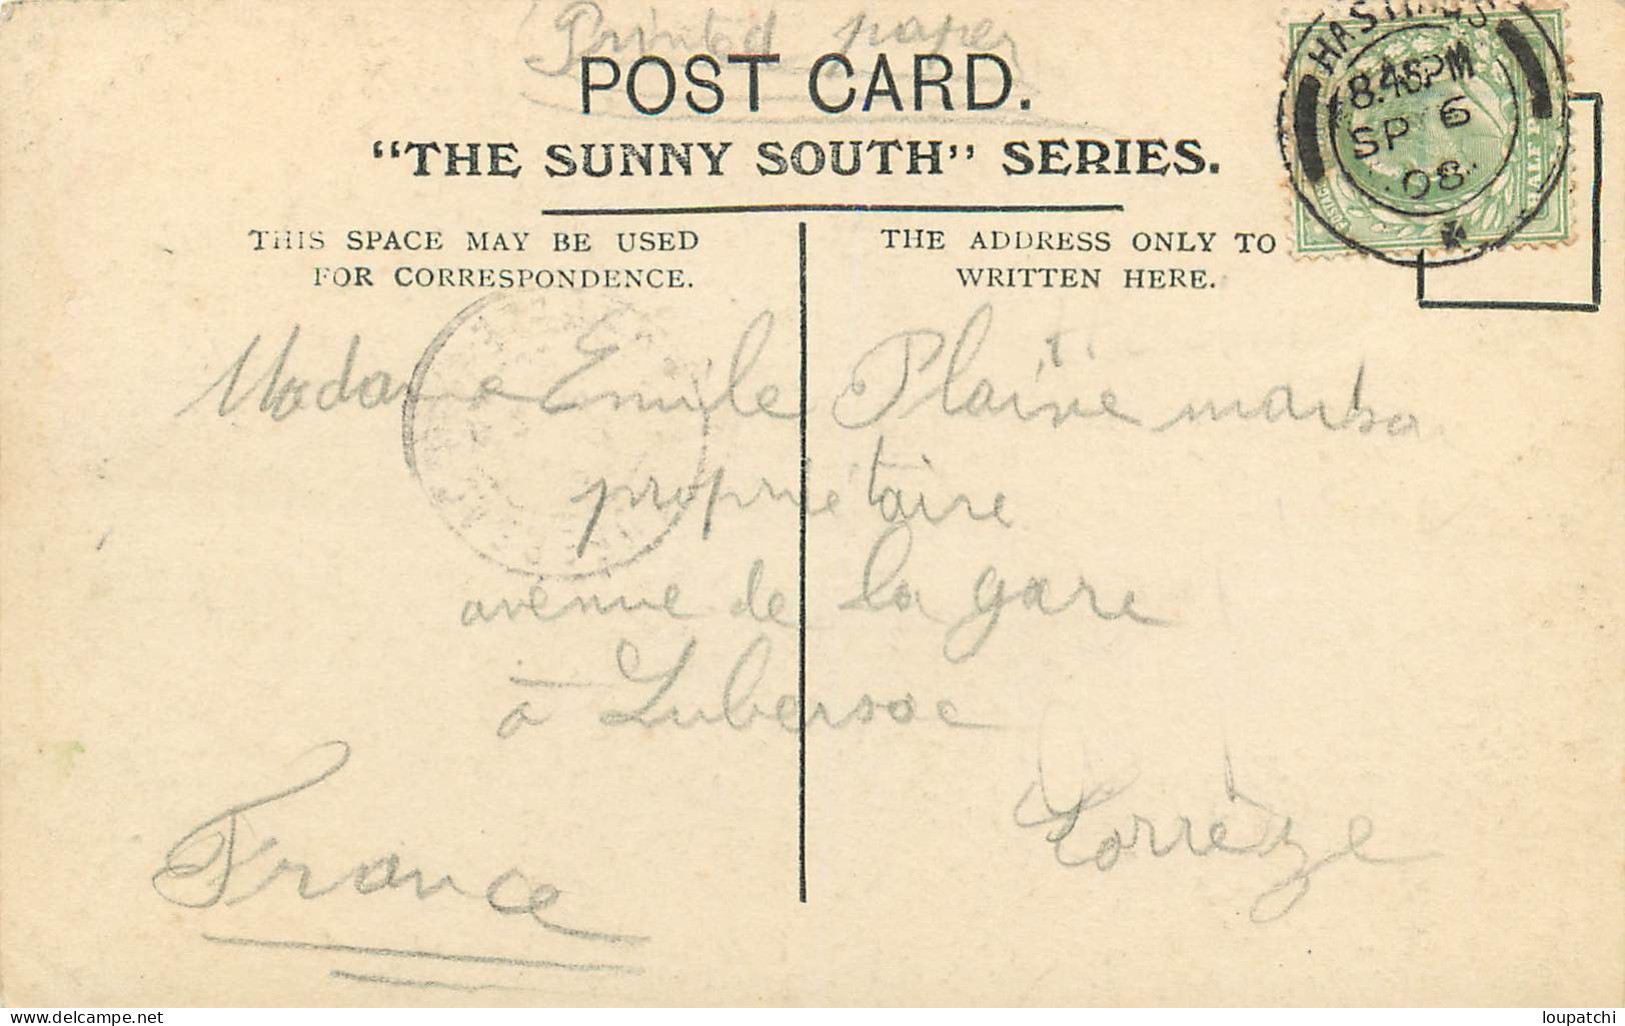 Printed paper
POST CARD.
"THE SUNNY SOUTH" SERIES.
THIS SPACE MAY BE USED
FOR CORRESPONDENCE.
THE ADDRESS ONLY TO
WRITTEN HERE.
HASTINGS
8.45PM
SP 6
08
HALF P
Madame Emile Plaine
propriétaire
avenue de la gare
à Lubersac
Corrèze
France
delcampe.net
loupatchi